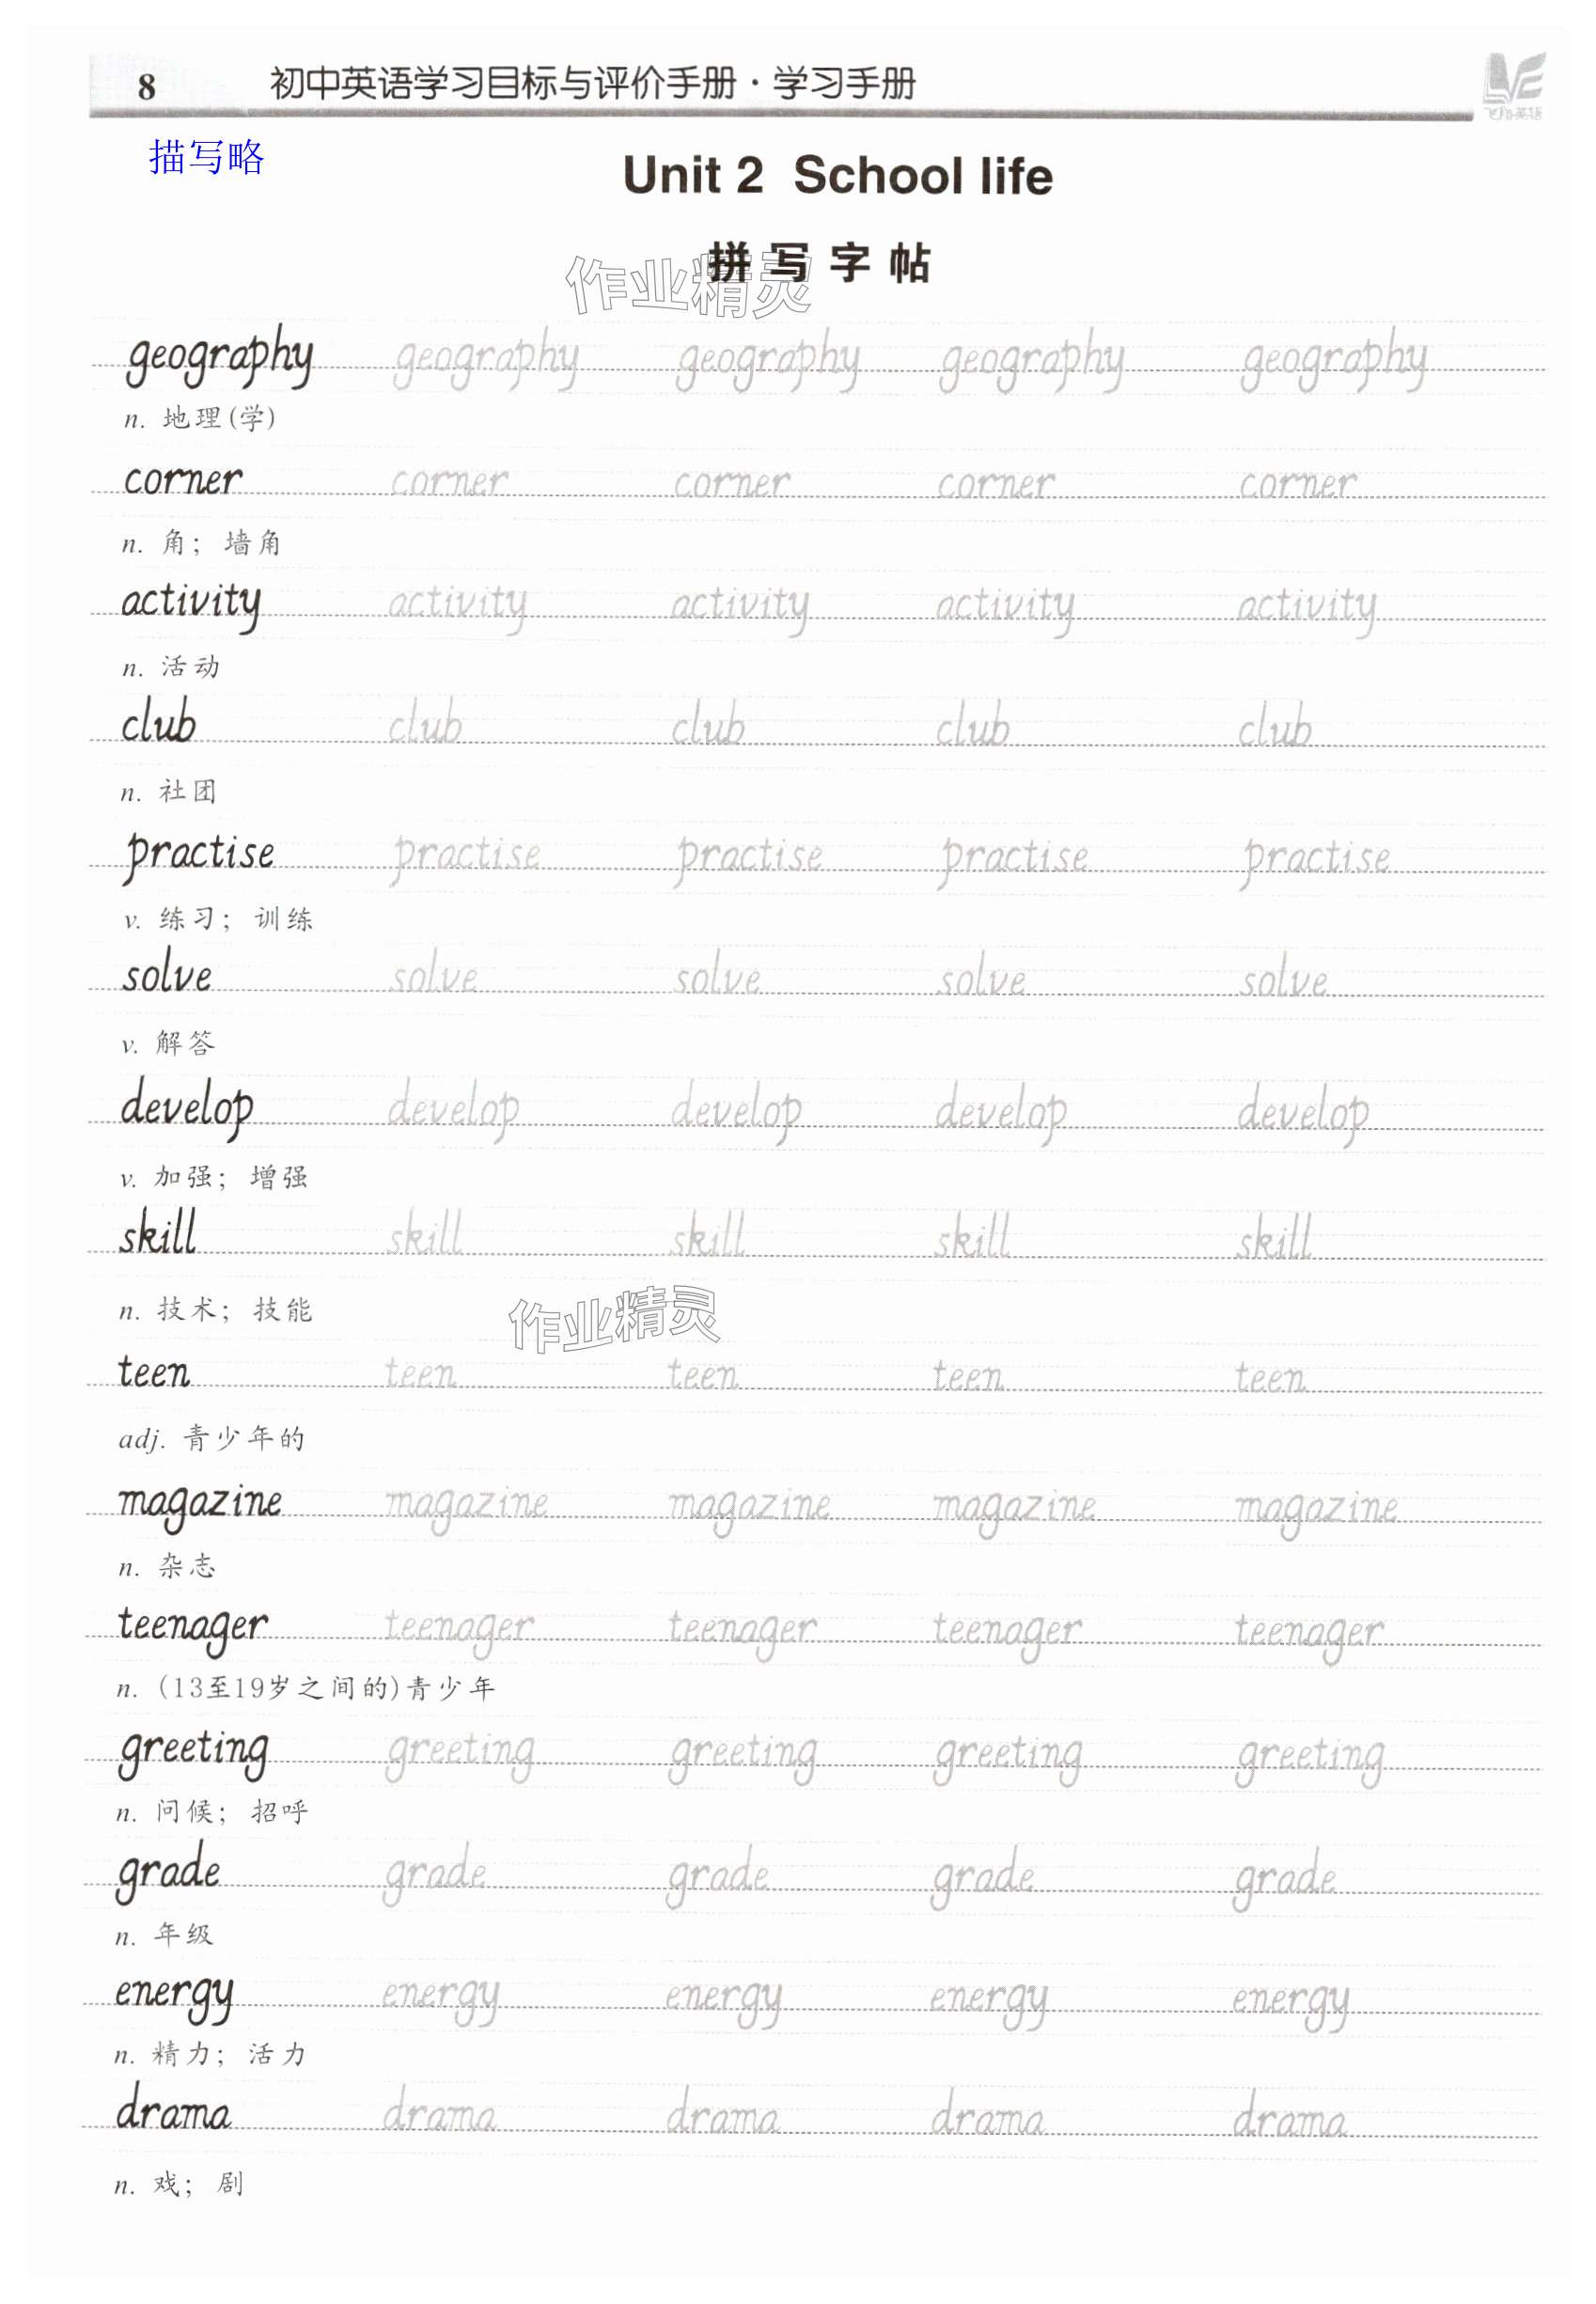 8 初中英语学习目标与评价手册·学习手册
描写略
Unit 2 School life
拼写字帖
作业精灵
geography geography geography geography geography
n. 地理(学)
corner corner corner corner corner
n. 角； 墙角
activity activity activity activity activity
n. 活动
club club club club club
n. 社团
practise practise practise practise practise
v. 练习； 训练
solve solve solve solve solve
v. 解答
develop develop develop develop develop
v. 加强； 增强
skill skill skill skill skill
n. 技术； 技能
作业精灵
teen teen teen teen teen
adj. 青少年的
magazine magazine magazine magazine magazine
n. 杂志
teenager teenager teenager teenager teenager
n. (13至19岁之间的)青少年
greeting greeting greeting greeting greeting
n. 问候； 招呼
grade grade grade grade grade
n. 年级
energy energy energy energy energy
n. 精力； 活力
drama drama drama drama drama
n. 戏； 剧